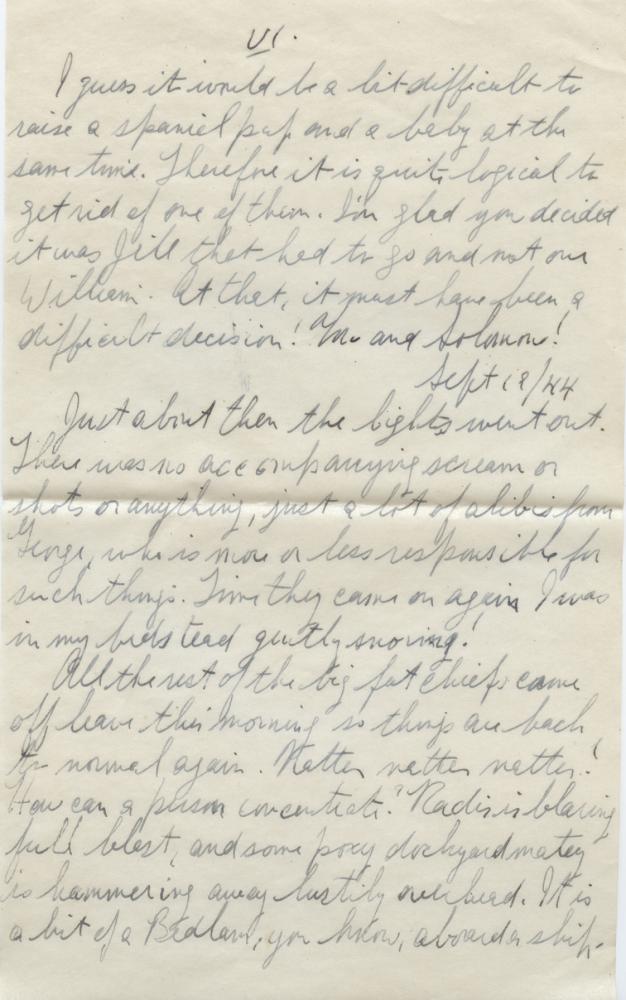 VI.
I guess it would be a bit difficult to
raise a spaniel pup and a baby at the
same time. Therefore it is quite logical to
get rid of one of them. I'm glad you decided
it was Jill that had to go and not our
William. At that, it must have been a
difficult decision! Me and Solomon!
Sept 18/44
Just about then the lights went out.
There was no accompanying scream or
shots or anything, just a lot of alibis from
George, who is more or less responsible for
such things. Time they came on again I was
in my bedstead gently snoring!
All the rest of the big fat chiefs came
off leave this morning so things are back
to normal again. Natter natter natter!
How can a person concentrate? Radio is blaring
full blast, and some poxy dockyard matey
is hammering away lustily overhead. It is
a bit of a Bedlam, you know, aboard a ship.